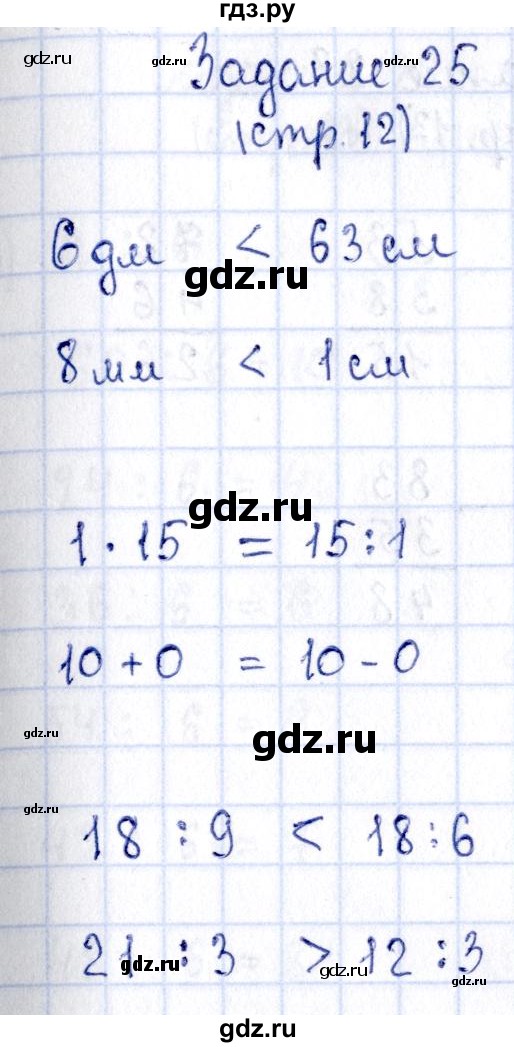 гдз.ру
gdz.ru gdz.ru gdz.ru
Задание 25
(стр. 12)
6 дм < 63 см
gdz.ru
gdz.ru
8 мм < 1 см
gdz.ru
1 · 15 = 15 : 1
gdz.ru
10 + 0 = 10 - 0
gdz.ru
gdz.ru
gdz.ru
18 : 9 < 18 : 6
21 : 3 > 12 : 3
gdz.ru gdz.ru
gdz.ru